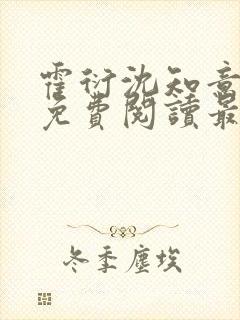 霍衍沈知意
免費閱讀最
冬季塵埃